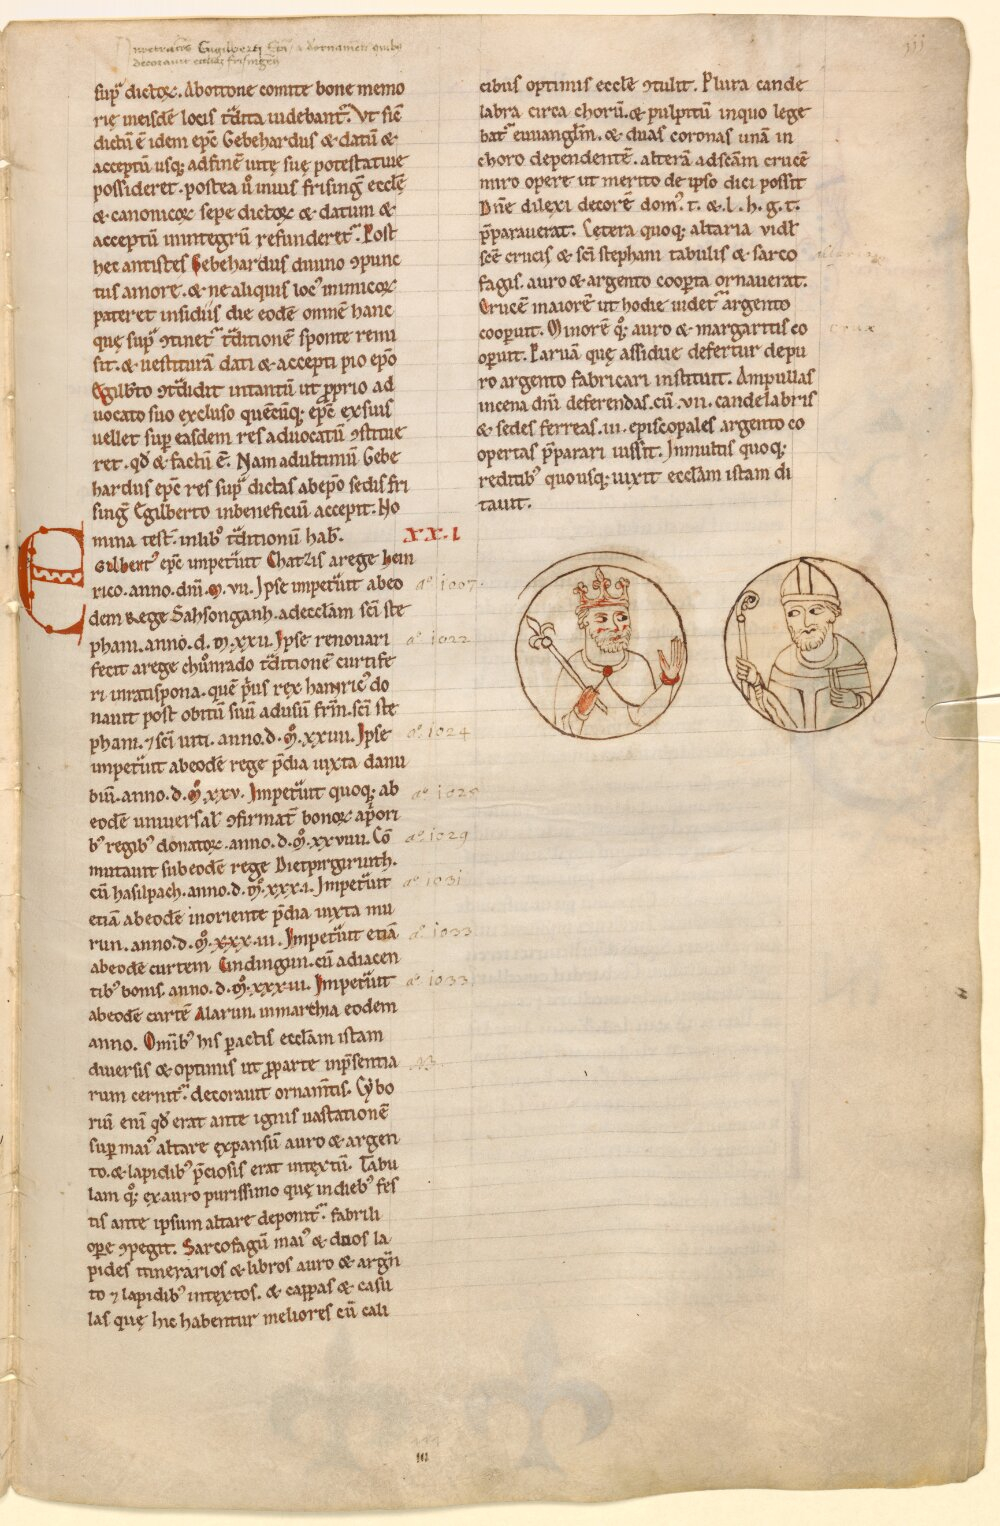 decoravit eccłiā frisingēn
iij
sup͛ dictoꝝ. Abottone comite bone memo
rię meisdē locis t͛dita uidebant͛. Vt siē
dictū ē idem epc̄ Gebehardus & datū &
acceptū usq; adfinē uitę suę potestatiue
possideret. postea ů inuus frisinḡ ecclę̄
& canonicoꝝ sepe dictoꝝ & datum &
acceptū inintegrū refunderet͛. Post
hec antistes Gebehardus diuino ꝯpunc
tus amore. & ne aliquis locꝰ inimicoꝝ
pateret insidiis die eodē omnē hanc
quę sup͛ ꝯtinet͛ t͛ditionē sponte remi
sit. & uestiturā dati & accepti pio epō
Egilb̄to ꝯt͛didit intantū ut ꝓprio ad
uocato suo excluso quēcūq; epc̄ exsuis
uellet suꝑ easdem res aduocatū ꝯstitue
ret. qđ & factū ē. Nam adultimū Gebe
hardus epc̄ res sup͛ dictas abepō sedis fri
sinḡ Egilberto inbeneficiū accepit. No
mina test̄. inlibꝰ t͛ditionū hab̄. XX.I.
Egilbertꝰ epc̄ impet͛uit Chatzis arege hein
rico. anno. dn̄i. ɱ. vii. Ipse impet͛uit abeo aº 1007.
dem Rege Sahsonganh. adecclām scī ste
phani. anno. d. ɱ. xxii. Ipse renouari aº. 1022
fecit arege chůnrado t͛ditionē curtife
ri inratispona. quē p͛us rex hainricꝰ do
nauit post obitū suū adusum fr̄m. scī ste
phani. ⁊ scī uiti. anno. d. ɱ̊. xxiiii. Ipse aº. 1024
impet͛uit abeodē rege p̄dia iuxta danu
biū. anno. d. ɱ̊. xxv. Impet͛uit quoq; ab aº. 1025
eodē uniuersał ꝯfirmat̄ bonoꝝ apͥori
bꝰ regibꝰ donatoꝝ. anno. d. ɱ̊. xxviiii. Cō aº. 1029
mutauit subeodē rege Dietpirgiriuth.
cū hasilpach. anno. d. ɱ̊. xxx.i. Impet͛uit aº 1031
etiā abeodē inoriente p̄dia iuxta mu
run. anno. d. ɱ̊. xxx.iii. Impet͛uit etiā aº 1033
abeodē curtem Cindingun. cū adiacen
tibꝰ bonis. anno. d. ɱ̊. xxx.iii. Impet͛uit aº 1033
abeodē curtē Alarun. inmarchia eodem
anno. Omībꝰ his ꝑactis ecclām istam
diuersis & optimis ut ꝓparte inp̄sentia
rum cernit͛. decorauit ornam̄tis. Cybo
riū enī qđ erat ante ignis uastationē
suꝑ maiꝰ altare ęxpansū auro & argen
to. & lapidibꝰ p̄ciosis erat intextū. Tabu
lam q̊;. ęx auro purissimo quę indiebꝰ fes
tis ante ipsum altare deponit͛. fabrili
opꝑe ꝯpegit. Sarcofagū maiꝰ & duos la
pides itinerarios & libros auro & arḡn
to ⁊ lapidibꝰ intęxtos. & cappas & casu
las quę hic habentur meliores cū cali
cibus optimis ecclē ꝯtulit. Plura cande
labra circa chorū. & pulpitū inquo lege
bat͛ euuangłm. & duas coronas unā in
choro dependentē. alterā adscām crucē
miro opere ut merito de ipso dici possit
Dn̄e dilexi decorē domꝰ. t. & .l. h. g. t.
p̄parauerat. Cętera quoq; altaria vidł
scē crucis & scī stephani tabulis & sarco
fagis. auro & argento cooꝑta ornauerat.
Crucē maiorē ut hodie uidet͛ argento
cooꝑuit. Minorē q̊;. auro & margaritis co crux
oꝑuit. Paruā quę assidue defertur depu
ro argento fabricari instituit. Ampullas
incena dn̄i deferendas. cū .vii. candelabris
& sedes ferreas. iii. episcopales argento co
opertas p̄parari iussit. Inmultis quoq;
reditibꝰ quousq; uixit ecclām istam di
tauit.
iii